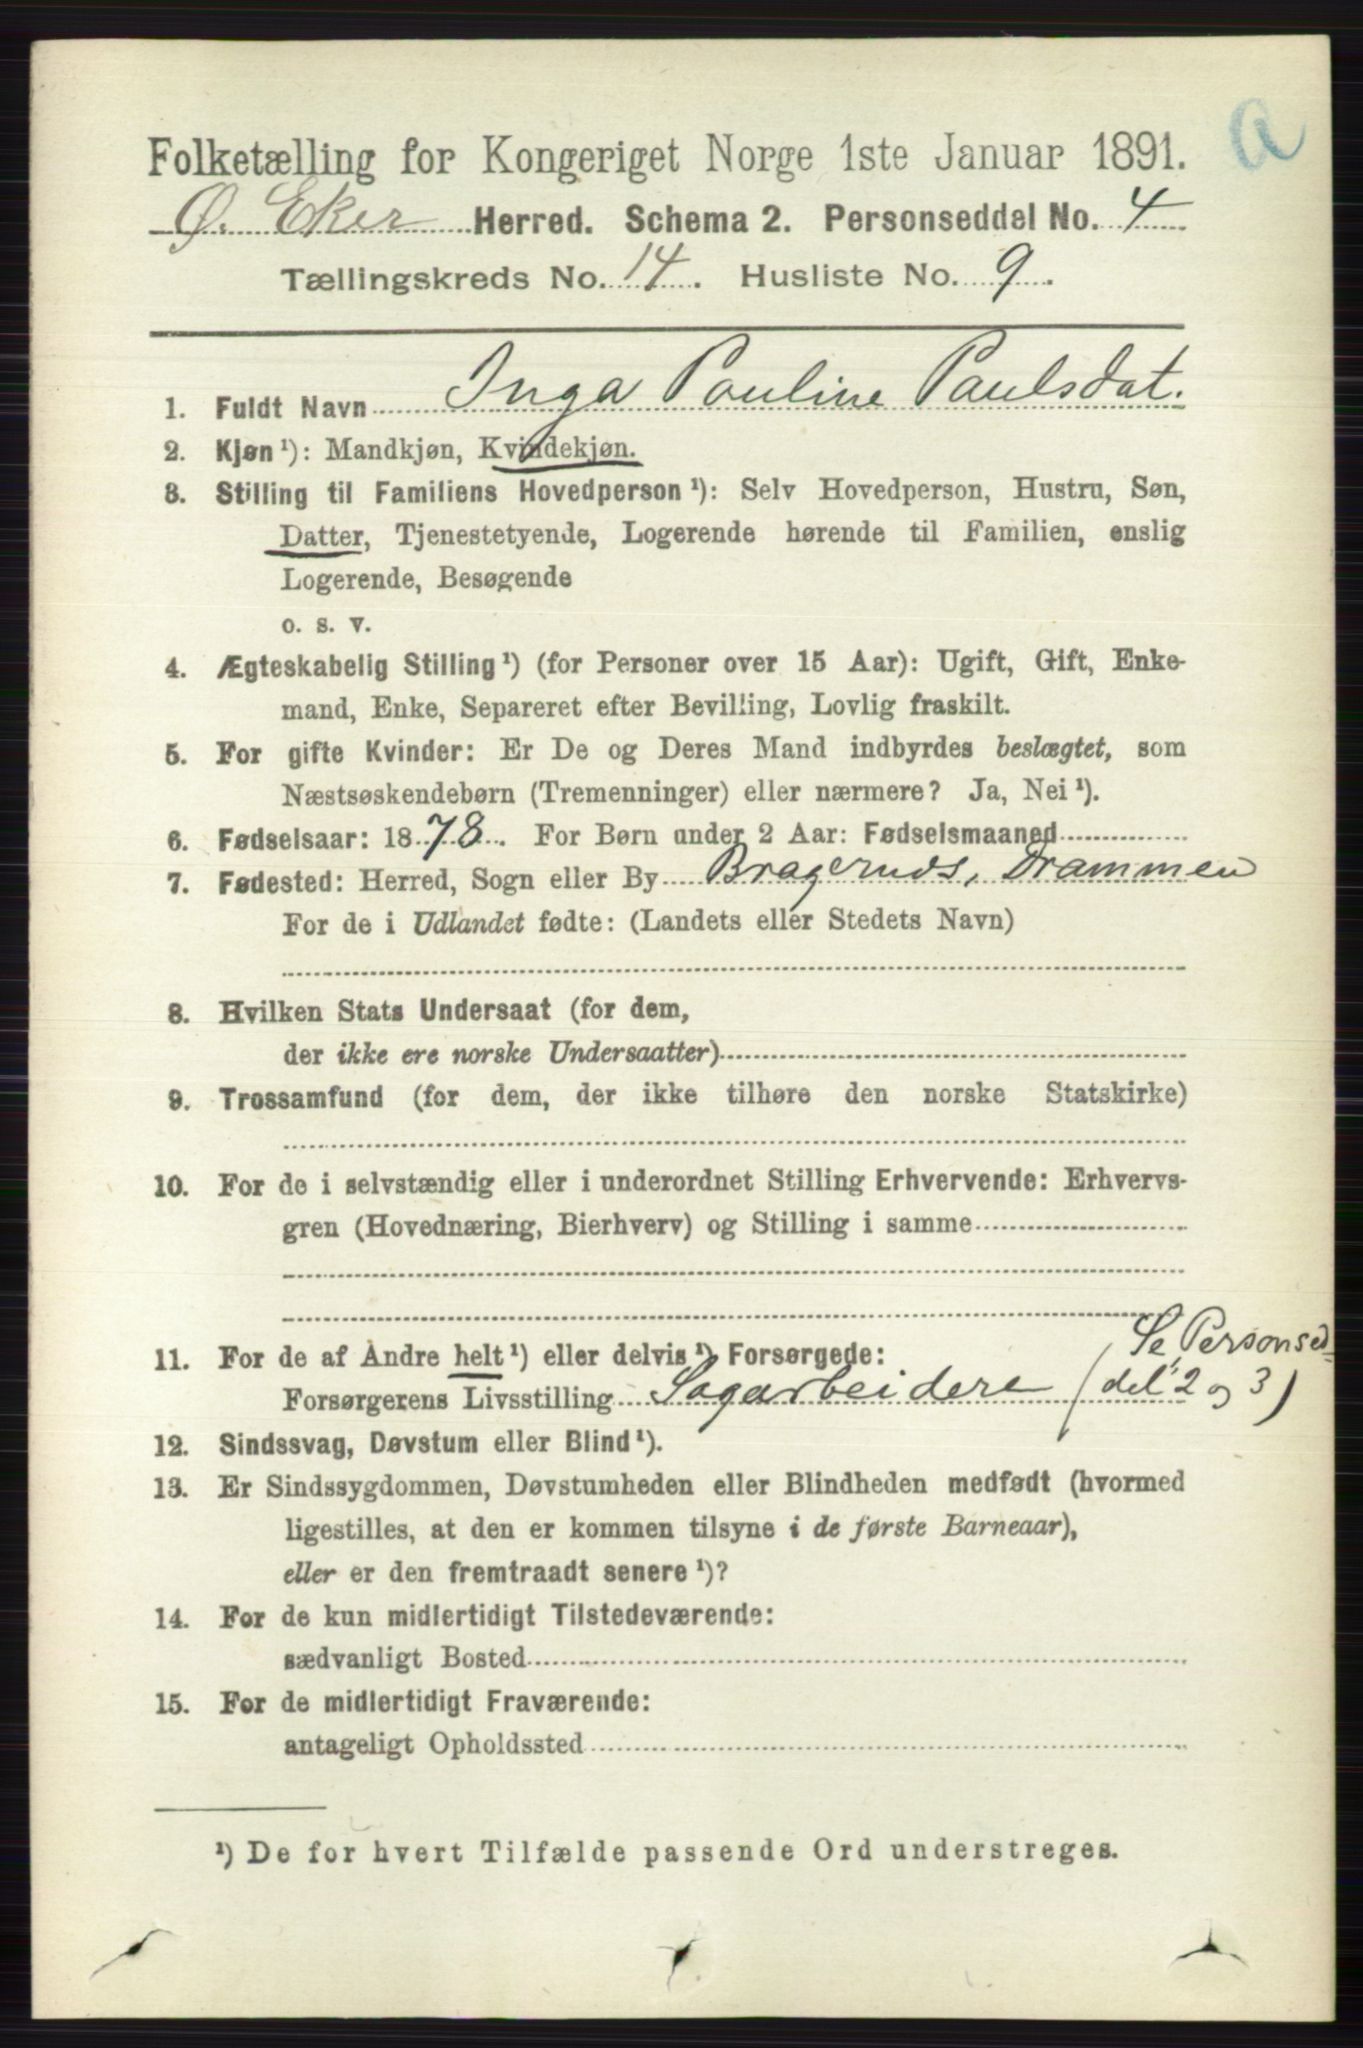 a
Folketælling for Kongeriget Norge 1ste Januar 1891.
Ø. Eker Herred. Schema 2. Personseddel No. 4
Tællingskreds No. 14. Husliste No. 9.
1. Fuldt Navn Inga Pauline Paulsdat.
2. Kjøn¹): Mandkjøn, Kvindekjøn.
3. Stilling til Familiens Hovedperson¹): Selv Hovedperson, Hustru, Søn,
Datter, Tjenestetyende, Logerende hørende til Familien, enslig
Logerende, Besøgende
o. s. v.
4. Ægteskabelig Stilling¹) (for Personer over 15 Aar): Ugift, Gift, Enke-
mand, Enke, Separeret efter Bevilling, Lovlig fraskilt.
5. For gifte Kvinder: Er De og Deres Mand indbyrdes beslægtet, som
Næstsøskendebørn (Tremenninger) eller nærmere? Ja, Nei¹).
6. Fødselsaar: 1878. For Børn under 2 Aar: Fødselsmaaned
7. Fødested: Herred, Sogn eller By Bragernds, Drammen
For de i Udlandet fødte: (Landets eller Stedets Navn)
8. Hvilken Stats Undersaat (for dem,
der ikke ere norske Undersaatter)
9. Trossamfund (for dem, der ikke tilhøre den norske Statskirke)
10. For de i selvstændig eller i underordnet Stilling Erhvervende: Erhvervs-
gren (Hovednæring, Bierhverv) og Stilling i samme
11. For de af Andre helt¹) eller delvis¹) Forsørgede: (Se Personsed-
Forsørgerens Livsstilling Sagarbeidere del 2 og 3)
12. Sindssvag, Døvstum eller Blind¹).
13. Er Sindssygdommen, Døvstumheden eller Blindheden medfødt (hvormed
ligestilles, at den er kommen tilsyne i de første Barneaar),
eller er den fremtraadt senere¹)?
14. For de kun midlertidigt Tilstedeværende:
sædvanligt Bosted
15. For de midlertidigt Fraværende:
antageligt Opholdssted
¹) De for hvert Tilfælde passende Ord understreges.